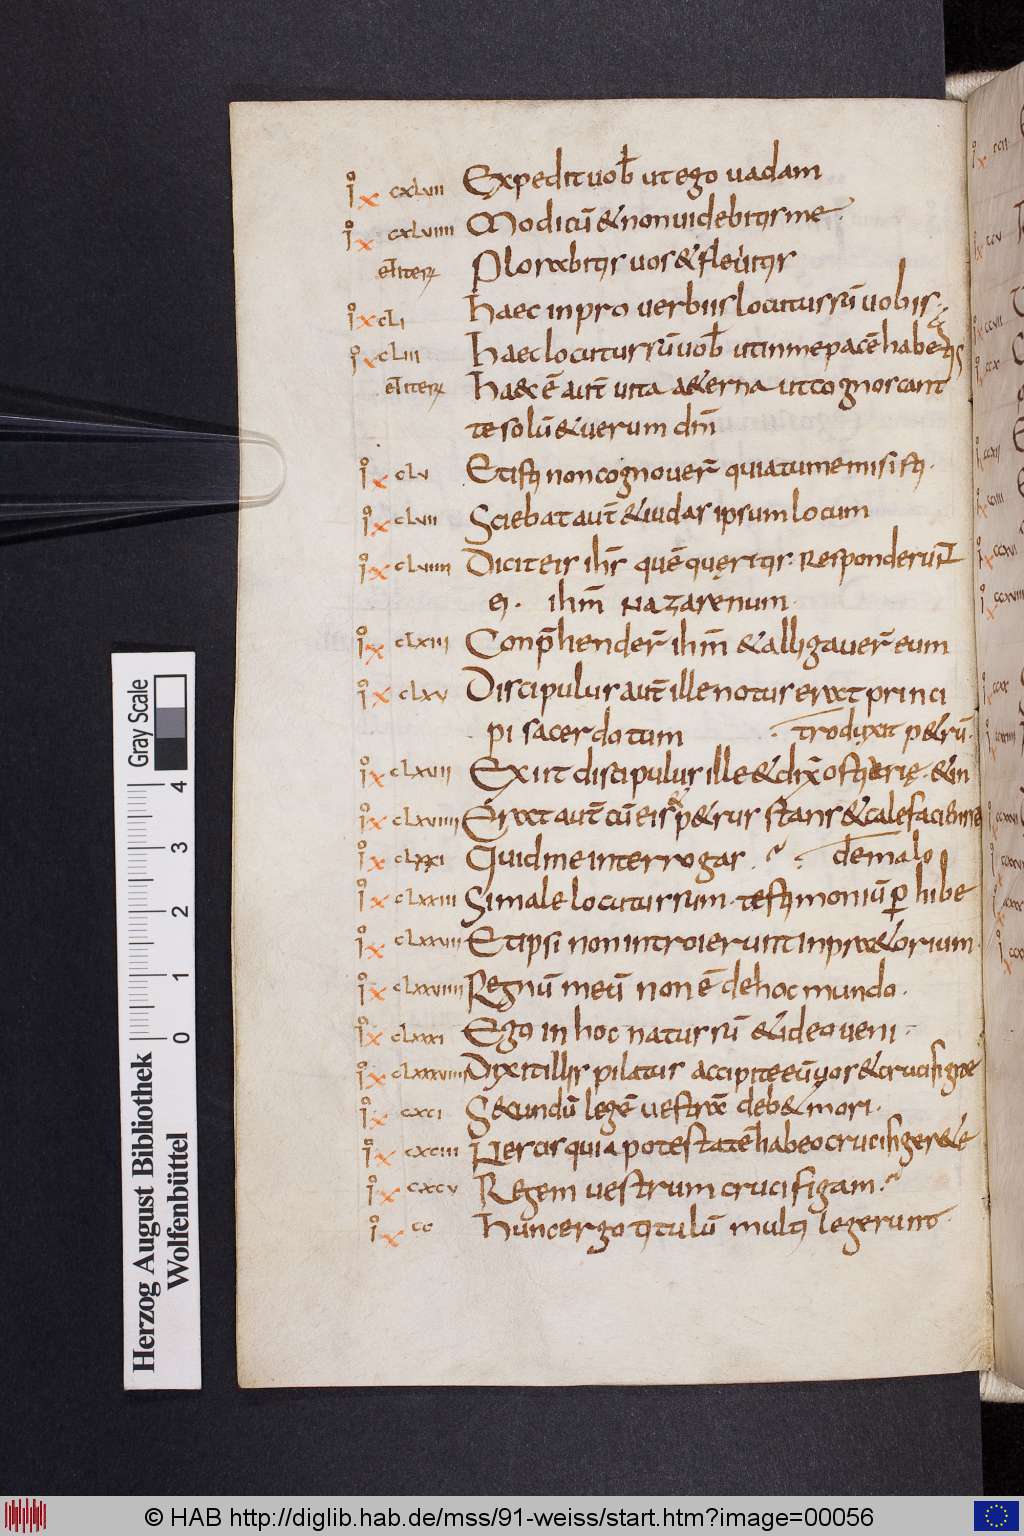 iͦ x cxlvii Expedit uob̄ ut ego uadam
iͦ x cxlviiii Modicū & non uidebitis me.
et iter Plorabitis uos & flebitis
iͦ x cli haec in pro uerbiis locutus sū uobis
iͦ x cliii haec locutus sū uob̄ ut in me pacē habetis
et iter haec ē aut̄ uita aeterna ut cognoscant
te solū & uerum dm̄
iͦ x clv Et isti non cognouer̄ quia tu me misisti.
iͦ x clvii Sciebat aut̄ & iudas ipsum locum
iͦ x clviiii Dicit eis ihs̄ quē quęritis. Responderunt
ei. ihm̄ Nazarenum.
iͦ x clxiii Conp̄henderr̄ ihm̄ & alligauer̄ eum
iͦ x clxv Discipulus aut̄ ille notus erat princi
pi sacerdotum . troduxit p&rū.
iͦ x clxvii Exiit discipulus ille & dix̄ ostiarię. & in
iͦ x clxviiii Erat aut̄ cū eis & p&rus stans & calefaciens se
iͦ x clxxi Quid me interrogas . de malo
iͦ x clxxiii Si male locutus sum. testimoniū perhibe
iͦ x clxxviii Et ipsi non introierunt in praetorium.
iͦ x clxxviiii Regnū meū non ē de hoc mundo.
iͦ x clxxxi Ego in hoc natus sū & ideo ueni
iͦ x clxxxviiii Dixit illis pilatus accipite eū uos & crucifigite
iͦ x cxci Secundū legē uestrā deb& mori.
iͦ x cxciii Nescis quia potestatē habeo crucifigere te
iͦ x cxcv Regem uestrum crucifigam.
iͦ x cc hunc ergo titulū multi legerunt.
Gray Scale
4
3
2
1
0
Herzog August Bibliothek
Wolfenbüttel
© HAB http://diglib.hab.de/mss/91-weiss/start.htm?image=00056